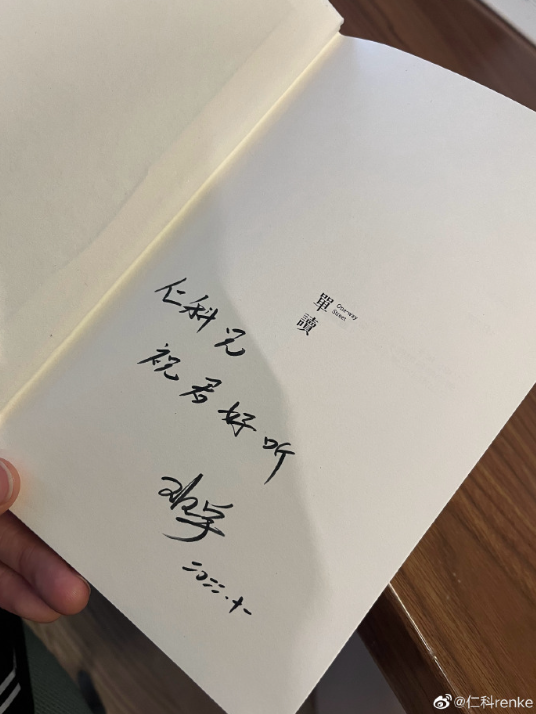 單讀
One-way
Street
仁科兄
祝君好听
二〇二二.十一
@仁科renke